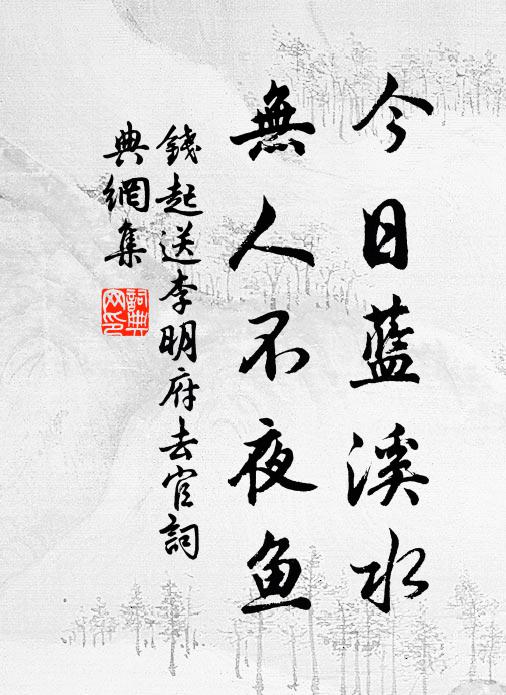 今日藍溪水
無人不夜魚
錢起送李明府去官詞
典網集
詞典網印